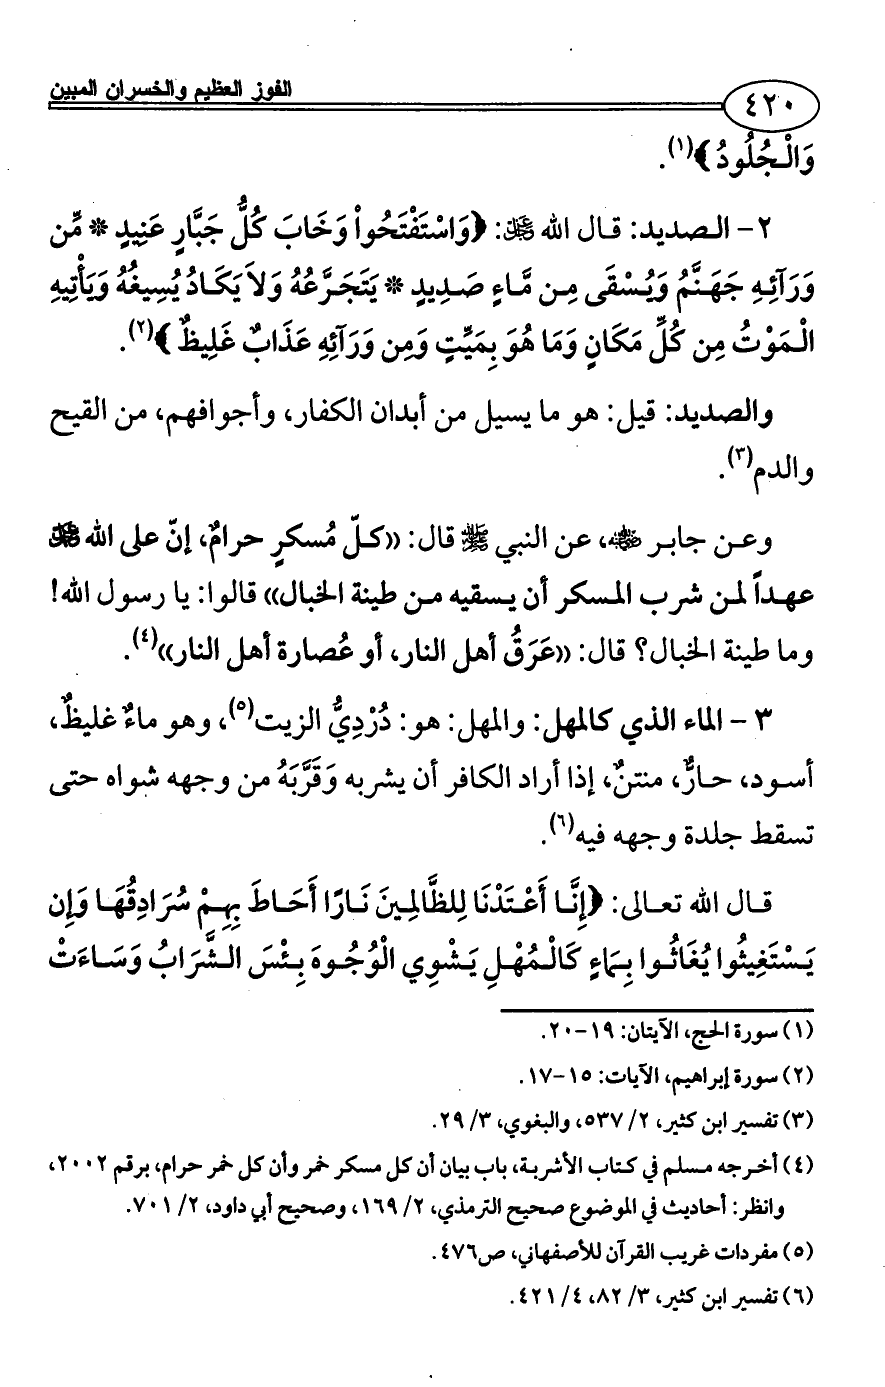 الفوز العظيم والخسران المبين
٤٢٠
وَالْجُلُودُ﴾(١).
٢- الصديد: قال الله ﷻ: ﴿وَاسْتَفْتَحُواْ وَخَابَ كُلُّ جَبَّارٍ عَنِيدٍ * مِّن
وَرَآئِهِ جَهَنَّمُ وَيُسْقَى مِن مَّاءٍ صَدِيدٍ * يَتَجَرَّعُهُ وَلاَ يَكَادُ يُسِيغُهُ وَيَأْتِيهِ
الْمَوْتُ مِن كُلِّ مَكَانٍ وَمَا هُوَ بِمَيِّتٍ وَمِن وَرَآئِهِ عَذَابٌ غَلِيظٌ﴾(٢).
والصديد: قيل: هو ما يسيل من أبدان الكفار، وأجوافهم، من القيح
والدم(٣).
وعن جابر ﵁، عن النبي ﷺ قال: ((كلّ مُسكرٍ حرامٌ، إنّ على الله ﷻ
عهداً لمن شرب المسكر أن يسقيه من طينة الخبال)) قالوا: يا رسول الله!
وما طينة الخبال؟ قال: ((عَرَقُ أهل النار، أو عُصارة أهل النار))(٤).
٣- الماء الذي كالمهل: والمهل: هو: دُرْدِيُّ الزيت(٥)، وهو ماءٌ غليظٌ،
أسود، حارٌّ، منتنٌ، إذا أراد الكافر أن يشربه وَقَرَّبَهُ من وجهه شواه حتى
تسقط جلدة وجهه فيه(٦).
قال الله تعالى: ﴿إِنَّا أَعْتَدْنَا لِلظَّالِمِينَ نَارًا أَحَاطَ بِهِمْ سُرَادِقُهَا وَإِن
يَسْتَغِيثُوا يُغَاثُوا بِمَاءٍ كَالْمُهْلِ يَشْوِي الْوُجُوهَ بِئْسَ الشَّرَابُ وَسَاءَتْ
(١) سورة الحج، الآيتان: ١٩-٢٠.
(٢) سورة إبراهيم، الآيات: ١٥-١٧.
(٣) تفسير ابن كثير، ٢/ ٥٣٧، والبغوي، ٣/ ٢٩.
(٤) أخرجه مسلم في كتاب الأشربة، باب بيان أن كل مسكر خمر وأن كل خمر حرام، برقم ٢٠٠٢،
وانظر: أحاديث في الموضوع صحيح الترمذي، ٢/ ١٦٩، وصحيح أبي داود، ٢/ ٧٠١.
(٥) مفردات غريب القرآن للأصفهاني، ص٤٧٦.
(٦) تفسير ابن كثير، ٣/ ٨٢، ٤/ ٤٢١.